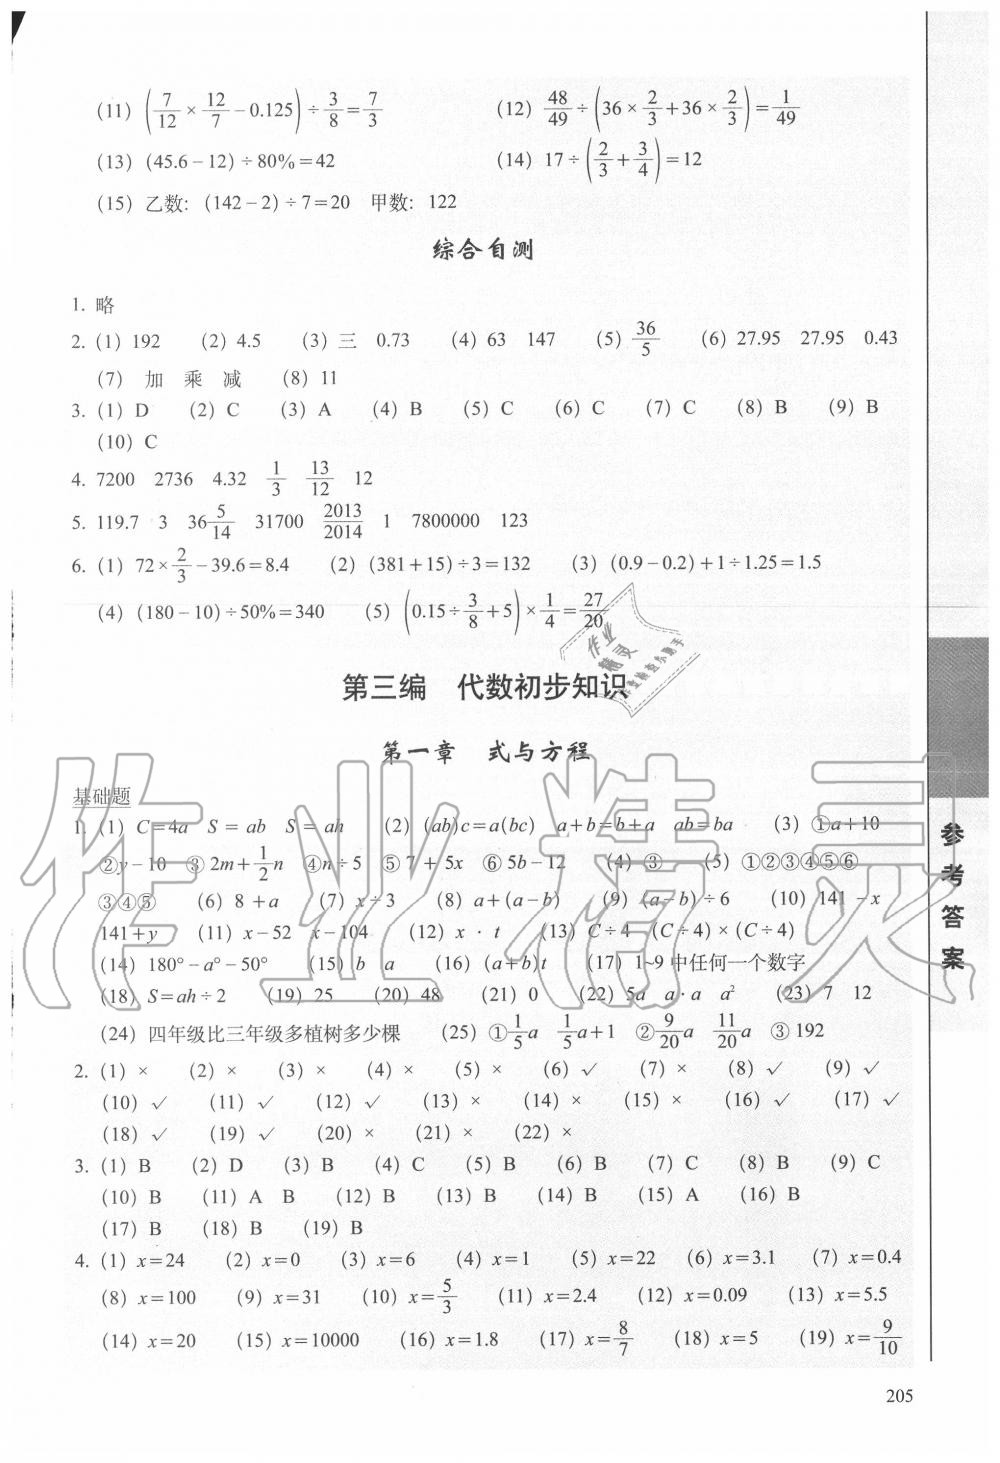 (11) (7/12×12/7−0.125)÷3/8=7/3 (12) 48/49÷(36×2/3+36×2/3)=1/49
(13) (45.6−12)÷80%=42 (14) 17÷(2/3+3/4)=12
(15) 乙数: (142−2)÷7=20 甲数: 122
综合自测
1. 略
2. (1) 192 (2) 4.5 (3) 三 0.73 (4) 63 147 (5) 36/5 (6) 27.95 27.95 0.43
(7) 加 乘 减 (8) 11
3. (1) D (2) C (3) A (4) B (5) C (6) C (7) C (8) B (9) B
(10) C
4. 7200 2736 4.32 1/3 13/12 12
5. 119.7 3 36 5/14 31700 2013/2014 1 7800000 123
6. (1) 72×2/3−39.6=8.4 (2) (381+15)÷3=132 (3) (0.9−0.2)+1÷1.25=1.5
(4) (180−10)÷50%=340 (5) (0.15÷3/8+5)×1/4=27/20
作业
精灵
第三编 代数初步知识
第一章 式与方程
基础题
1. (1) C=4a S=ab S=ah (2) (ab)c=a(bc) a+b=b+a ab=ba (3) ①a+10
②y−10 ③2m+1/2n ④n÷5 ⑤7+5x ⑥5b−12 (4) ③ (5) ①②③④⑤⑥
③④⑤ (6) 8+a (7) x÷3 (8) a+(a−b) (9) (a−b)÷6 (10) 141−x
141+y (11) x−52 x−104 (12) x·t (13) C÷4 (C÷4)×(C÷4)
(14) 180°−a°−50° (15) b a (16) (a+b)t (17) 1~9中任何一个数字
(18) S=ah÷2 (19) 25 (20) 48 (21) 0 (22) 5a a·a a² (23) 7 12
(24) 四年级比三年级多植树多少棵 (25) ①1/5a 1/5a+1 ②9/20a 11/20a ③192
2. (1) × (2) × (3) × (4) × (5) × (6) √ (7) × (8) √ (9) √
(10) √ (11) √ (12) √ (13) × (14) × (15) × (16) √ (17) √
(18) √ (19) √ (20) × (21) × (22) ×
3. (1) B (2) D (3) B (4) C (5) B (6) B (7) C (8) B (9) C
(10) B (11) A B (12) B (13) B (14) B (15) A (16) B
(17) B (18) B (19) B
4. (1) x=24 (2) x=0 (3) x=6 (4) x=1 (5) x=22 (6) x=3.1 (7) x=0.4
(8) x=100 (9) x=31 (10) x=5/3 (11) x=2.4 (12) x=0.09 (13) x=5.5
(14) x=20 (15) x=10000 (16) x=1.8 (17) x=8/7 (18) x=5 (19) x=9/10
作业精灵
参考答案
205